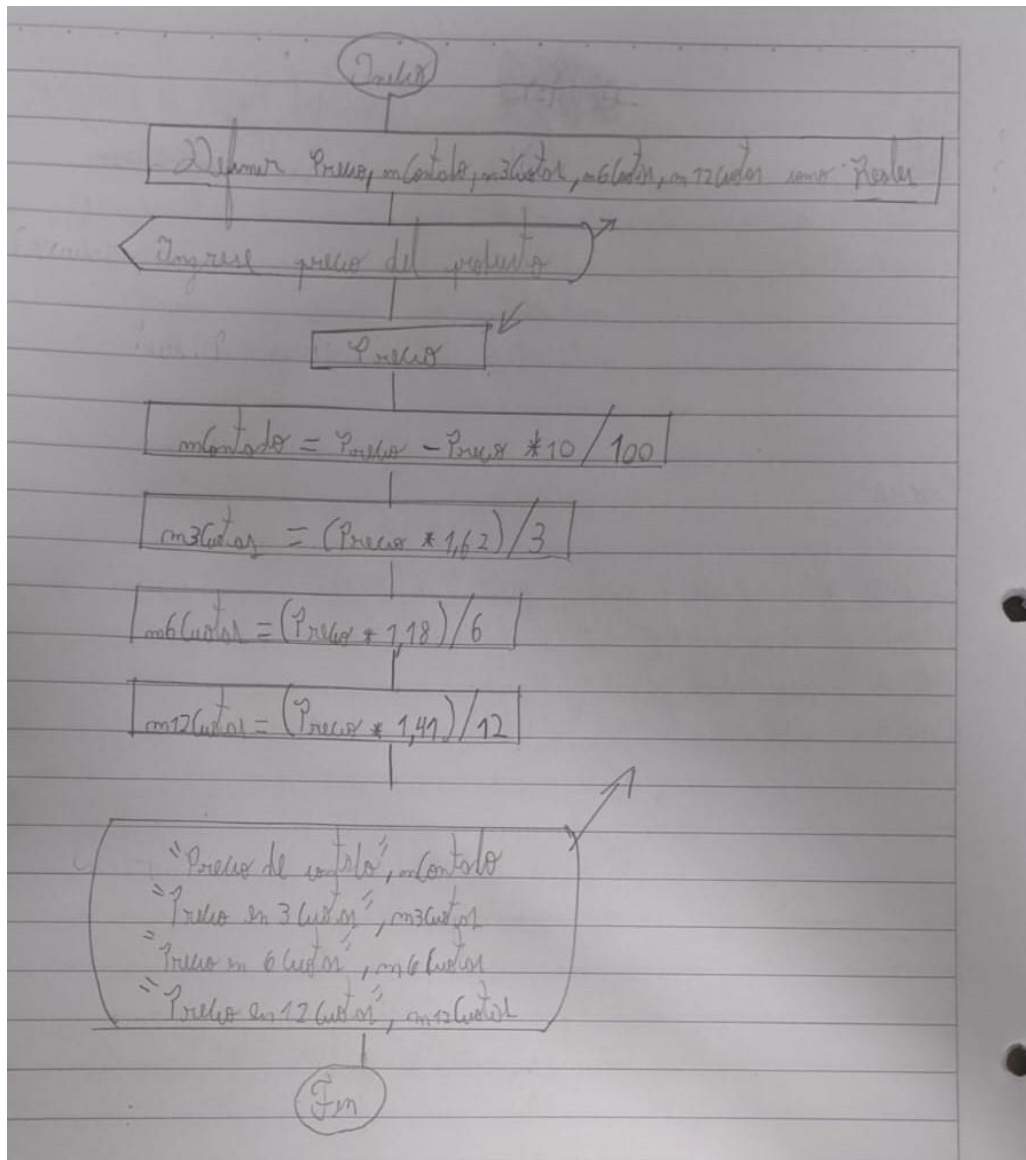 Inicio
Definir Precio, mContado, m3Cuotas, m6Cuotas, m12Cuotas como Reales
Ingrese precio del producto
Precio
mContado = Precio - Precio *10/100
m3Cuotas = (Precio * 1,62)/3
m6Cuotas = (Precio * 1,18)/6
m12Cuotas = (Precio * 1,41)/12
"Precio de contado", mContado
"Precio en 3 Cuotas", m3Cuotas
"Precio en 6 Cuotas", m6Cuotas
"Precio en 12 Cuotas", m12Cuotas
Fin